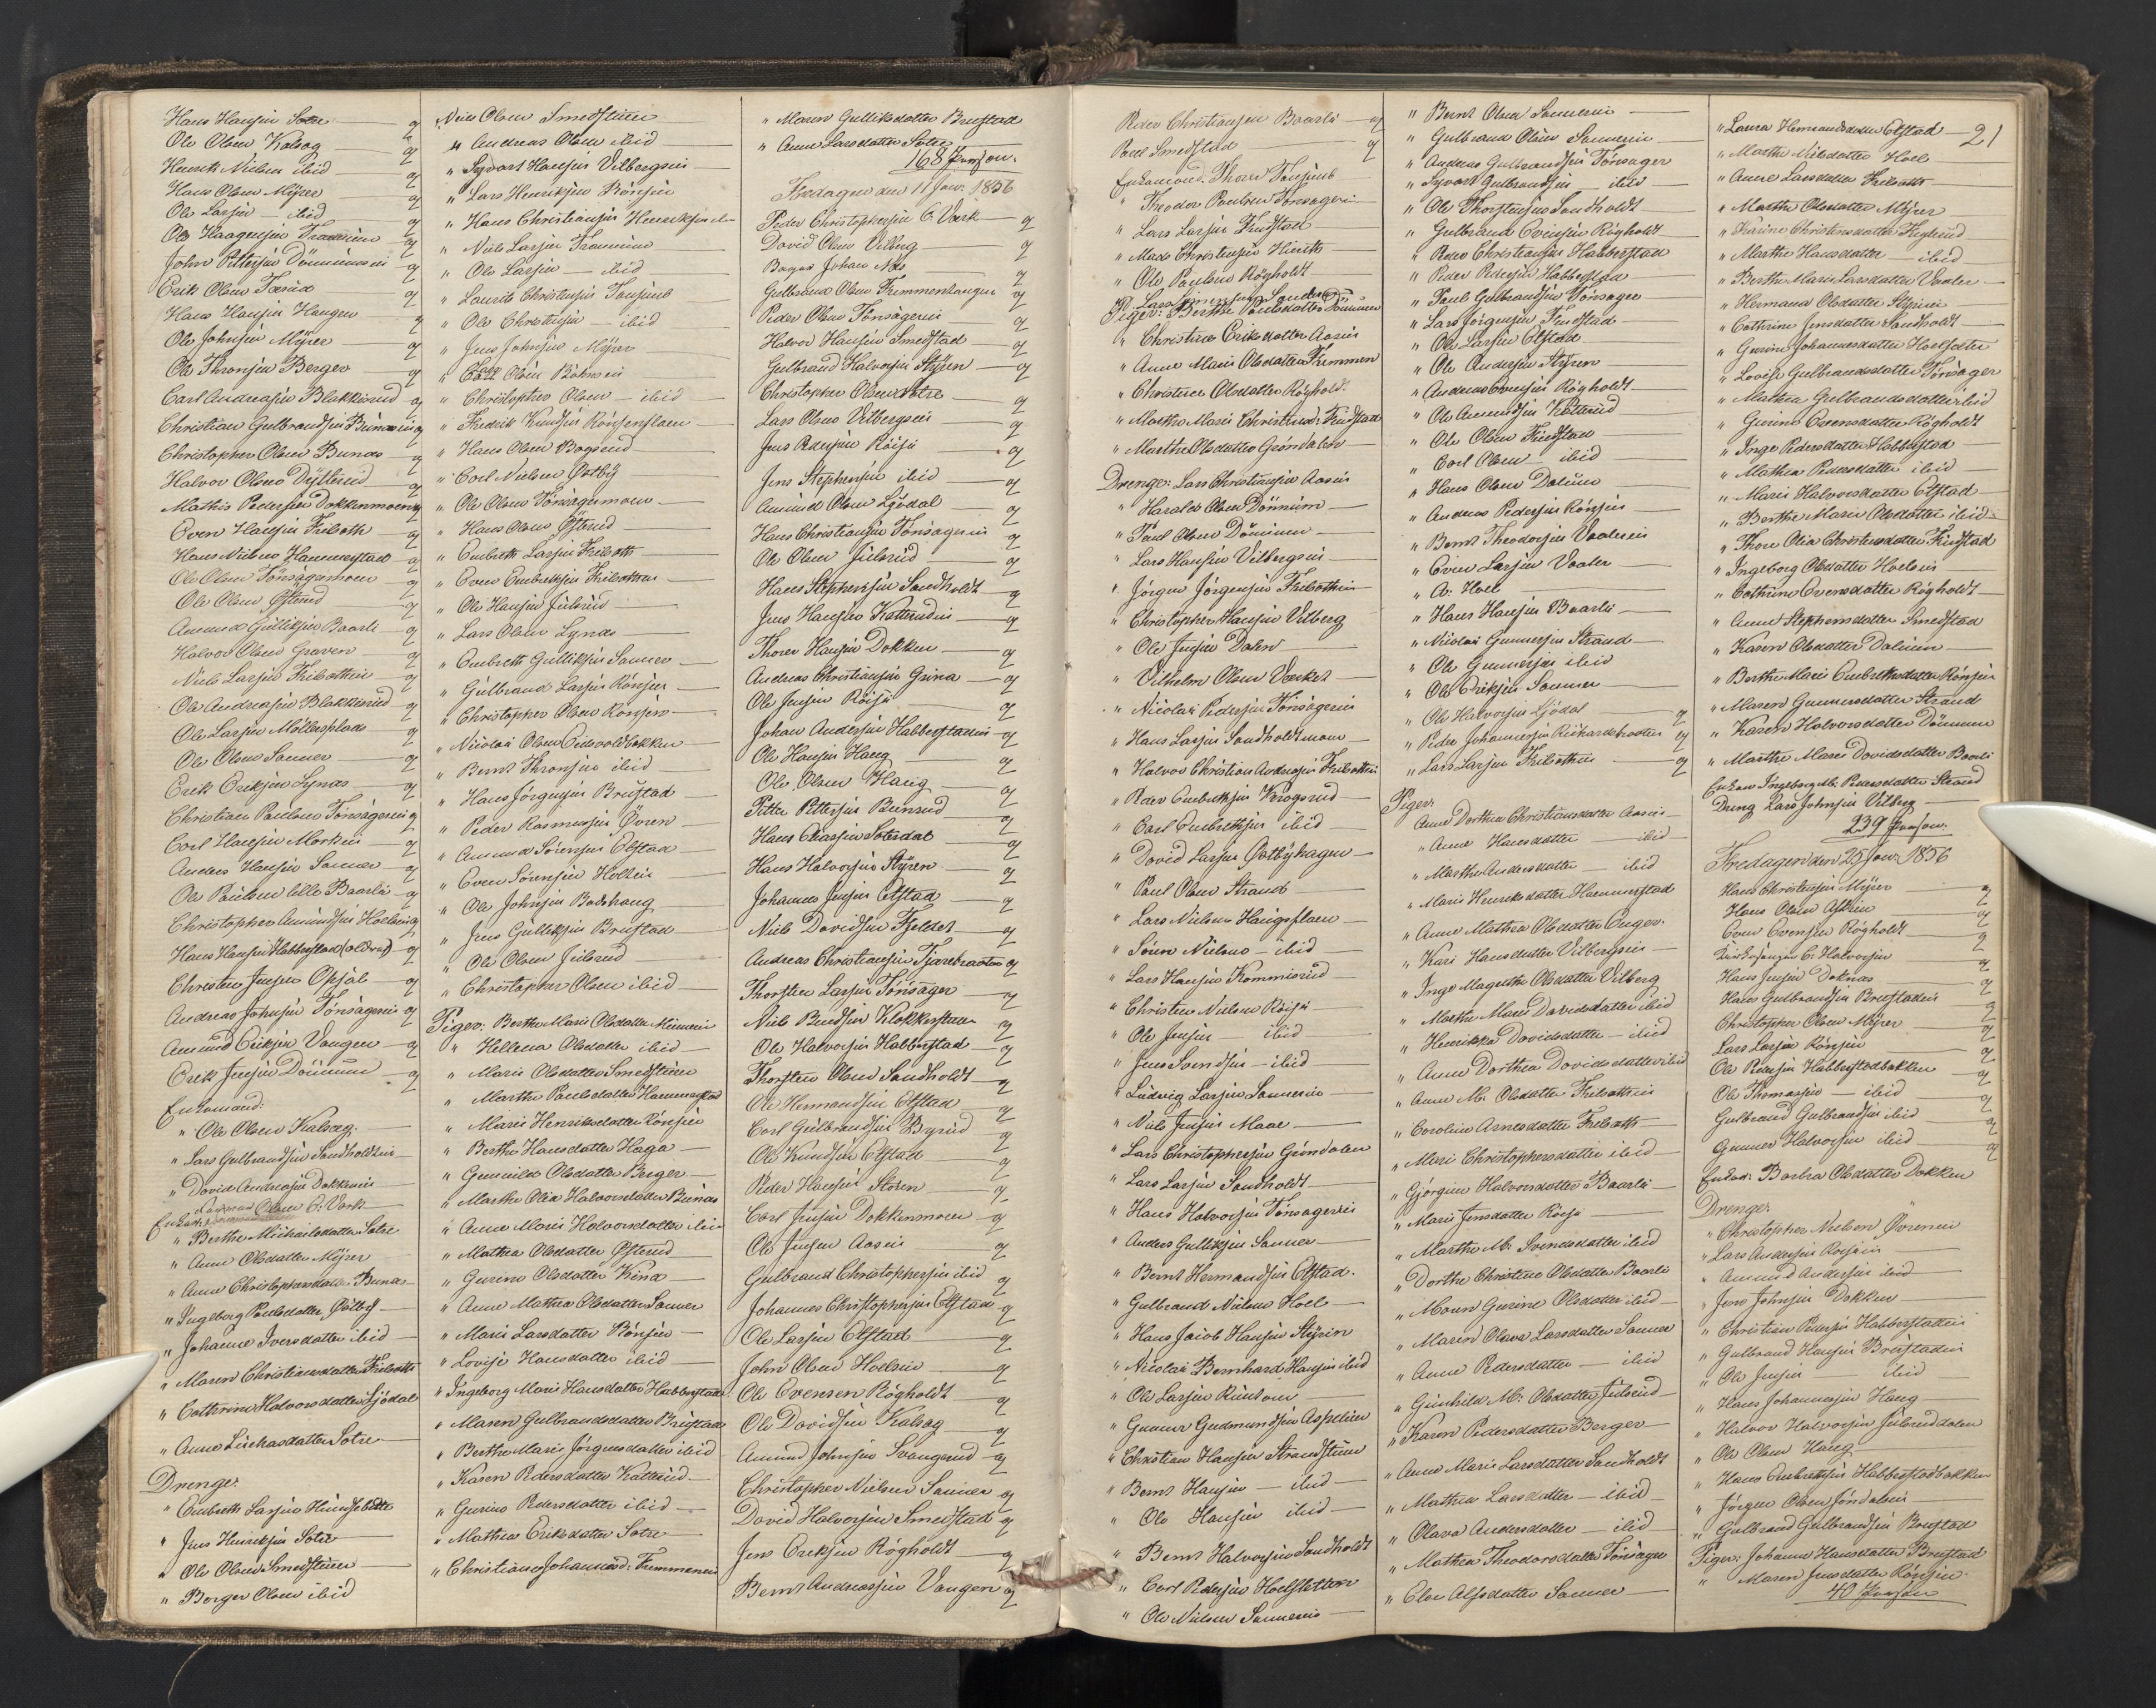 Hans Hansen Sotre — q
Ole Olsen Kalsag — q
Henrik Nielsen ibid — q
Hans Olsen Myrer — q
Ole Larsen — ibid — q
Ole Haagensen
John Pettersen — q
Erik Olsen — q
Hans Hansen Haugen — q
Ole Johnsen Myrer — q
Ole Thronsen Berger — q
Carl Andreasen Blakkisrud q
Christian Gulbrandsen
Christopher Olsen Bunæs — q
Halvor Olsen Dytterud — q
Mathis Pedersen Dokkenmoen q
Even Hansen Friboth — q
Hans Nielsen Hammerstad q
Ole Olsen Tönsagermoen — q
Ole Olsen Østerud — q
Amund Gulliksen Baarli — q
Halvor Olsen Graven — q
Niels Larsen — q
Ole Andreasen Blakkisrud q
Ole Larsen Möllerplads q
Ole Olsen Sanner — q
Erik Eriksen Lynæs — q
Christian Paulsen Tönsagerei q
Carl Hansen — q
Anders Hansen Sanner — q
Ole Paulsen lille Baarli q
Christopher Amundsen
Hans Hansen Habberstad (old) q
Christen Jensen Opsal — q
Andreas Johnsen Tönsagerei q
Amund Eriksen Vangen — q
Erik Jensen Dönnum q
Enkemænd:
" Ole Olsen Kalsæg —
" Lars Gulbrandsen Sandholdtei
" David Andreasen Dokkenei
Olsen E. Værk
" Berthe Michaelsdatter Sotre
" Anne Olsdatter Myrer
" Anne Christophersdatter Bunæs
" Ingeborg Paulsdatter Østby
" Johanne Iversdatter ibid
" Maren Christiansdatter
" Cathrine Halvorsdatter Ljödal
" Anne datter Sotre
Drenge:
" Embreth Larsen
" Jens Henriksen Sotre
" Ole Olsen Smedstuen
" Borger Olsen ibid
" Niels Olsen Smedstuen
" Andreas Olsen ibid
" Syvert Hansen Vilbergsei
" Lars Henriksen Rönsen
" Hans Christiansen
" Niels Larsen
" Ole Larsen — ibid
" Laurits Christensen
" Ole Christensen — ibid
" Jens Johnsen Myrer
" Carl Olsen
" Christopher Olsen — ibid
" Fredrik Knudsen
" Hans Olsen Bogerud
" Carl Nielsen Østby
" Ole Olsen Tönsagermoen
" Hans Olsen Østerud
" Embreth Larsen
" Even Embretsen
" Ole Hansen Julsrud
" Lars Olsen Lynæs
" Embreth Gulliksen Sanner
" Gulbrand Larsen Rönsen
" Christopher Olsen Rönsen
" Nicolai Olsen Eidsvoldbakken
" Bernt Thronsen ibid
" Hans Jörgensen Brustad
" Peder Rasmussen Øvren
" Amund Sörensen Elstad
" Even Sörensen
" Ole Johnsen
" Jens Gulliksen Brustad
" Ole Olsen Julsrud
" Christopher Olsen ibid
Piger: Berthe Marie Olsdatter
" Hellena Olsdatter ibid
" Marie Olsdatter Smedstuen
" Marthe Paulsdatter Hammerstad
" Marie Henriksdatter Rönsen
" Berthe Hansdatter Haga
" Gunnild Olsdatter Berger
" Marthe Olea Halvorsdatter Bunæs
" Anne Marie Halvorsdatter ibid
" Mathea Olsdatter Østerud
" Gurine Olsdatter
" Anne Mathea Olsdatter Sanner
" Marie Larsdatter Rönsen
" Lovise Hansdatter ibid
" Ingeborg Marie Hansdatter Habberstad
" Maren Gulbrandsdatter Brustad
" Berthe Marie Jörgensdatter ibid
" Karen Pedersdatter Katterud
" Gurine Pedersdatter ibid
" Mathea Eriksdatter Sotre
" Christiane Johannesd:
" Maren Gulliksdatter Brustad
" Anne Larsdatter Sotre
168 Person:
Fredagen den 11 Jan: 1856
Peder Christophersen E. Værk — q
David Olsen Vilberg — q
Johan Næs — q
Gulbrand Olsen q
Peder Olsen Tönsagerei q
Halvor Hansen Smedstad q
Gulbrand Halvorsen Styren q
Christopher Olsen Sotre q
Lars Olsen Vilbergsei q
Jens Pedersen Röise q
Jens Stephensen ibid q
Amund Olsen Ljödal q
Hans Christiansen Tönsagerei q
Ole Olsen Julsrud q
Hans Stephensen Sandholdt q
Jens Hansen Katterudei q
Thorer Hansen Dokken q
Andreas Christiansen Grina q
Ole Jensen Röise q
Johan Andersen Habberstadei q
Ole Hansen Haug q
Ole Olsen Haug q
Petter Pettersen q
Hans q
Hans Halvorsen Styren q
Johannes Jensen Elstad q
Niels Davidsen q
Andreas Christiansen Tjærebraaten q
Thorsten Larsen Tönsager q
Niels Klokkerstuen q
Ole Halvorsen Habberstad q
Thorsten Olsen Sandholdt q
Ole Hermandsen Elstad q
Carl Gulbrandsen q
Ole Knudsen Elstad q
Peder Hansen q
Carl Jensen Dokkenmoen q
Ole Jensen Aasei q
Gulbrand Christophersen ibid q
Johannes Christophersen Elstad q
Ole Larsen Elstad q
John Olsen q
Ole Evensen Rögholdt q
Ole Davidsen Kalsag q
Amund Johnsen q
Christopher Nielsen Sanner q
David Halvorsen Smedstad q
Jens Eriksen Rögholdt q
Bernt Andreassen Vangen q
Peder Christiansen Baarli q
Poul Smedstad q
Enkemænd. Thore
" Theodor Paulsen Tönsagerei
" Lars Larsen
" Mads Christensen
" Ole Paulsen Rögholdt
" Lars
Piger: Berthe Paulsdatter Dönnum
" Christine Eriksdatter Aasei
" Anne Marie Olsdatter
" Christine Olsdatter Rögholdt
" Marthe Marie Christensd:
" Marthe Olsdatter Gröndalen
Drenge: Lars Christiansen Aasei
" Harald Olsen Dönnum
" Paul Olsen Dönnum
" Lars Hansen Vilbergsei
" Jörgen Jörgensen
" Christopher Hansen Vilberg
" Ole Jensen Dalen
" Vilhelm Olsen Værket
" Nicolai Pedersen Tönsagerei
" Hans Larsen Sandholdtmoen
" Halvor Christian Andreasen
" Peder Embretsen
" Carl Embrethsen ibid
" David Larsen Østbyhagen
" Paul Olsen Strand
" Lars Nielsen
" Sören Nielsen — ibid
" Lars Hansen Kommisrud
" Christen Nielsen Röise
" Ole Jensen — ibid
" Jens Svendsen — ibid
" Ludvig Larsen Sannerei
" Niels Jensen
" Lars Christophersen Gröndalen
" Lars Larsen Sandholdt
" Hans Halvorsen Tönsagerei
" Anders Gulliksen Sanner
" Bernt Hermandsen Elstad
" Gulbrand Nielsen Hoel
" Hans Jacob Hansen Styrein
" Nicolai Bernhard Hansen ibid
" Ole Larsen
" Gunner Gudmundsen
" Christian Hansen Strandstuen
" Bernt Hansen — ibid
" Ole Hansen ibid
" Bernt Halvorsen Sandholdt
" Carl Pedersen
" Ole Nielsen Sannerei
" Bernt Olsen Sannerei
" Gulbrand Olsen Sannerei
" Andreas Gulbrandsen Tönsager
" Syvert Gulbrandsen — ibid
" Ole Thorstensen Sandholdt
" Gulbrand Evensen Rögholdt
" Peder Christiansen Habberstad
" Peder Pedersen Habberstad
" Paul Gulbrandsen Tönsager
" Lars Jörgensen
" Ole Larsen Elstad
" Ole Andersen Styren
" Andreas Evensen Rögholdt
" Ole Amundsen Katterud
" Ole Olsen
" Carl Olsen — ibid
" Hans Olsen
" Andreas Pedersen Rönsen
" Bernt Theodorsen
" Even Larsen
" A. Hoel
" Hans Hansen Baarli
" Nicolai Gunnersen Strand
" Ole Gunnersen ibid
" Ole Eriksen Sanner
" Ole Halvorsen Ljödal q
" Peder Johannesen q
" Lars Larsen q
Piger:
" Anne Dorthea Christiansdatter Aasei
" Anne Hansdatter ibid
" Marthe Andersdatter ibid
" Marie Henriksdatter Hammerstad
" Anne Mathea Olsdatter
" Kari Hansdatter Vilbergsei
" Inge Magrethe Olsdatter Vilberg
" Marthe Marie Davidsdatter ibid
" Henrikka Davidsdatter — ibid
" Anne Dorthea Davidsdatter ibid
" Anne M. Olsdatter
" Caroline Arnesdatter
" Mari Christophersdatter ibid
" Gjörgine Halvorsdatter Baarli
" Marie Jensdatter Röise
" Marthe M. Svendsdatter ibid
" Dorthe Christine Olsdatter Baarli
" Maren Gurine Olsdatter ibid
" Maren Olava Larsdatter Sanner
" Anne Pedersdatter — ibid
" Gunhild M. Olsdatter Julsrud
" Karen Pedersdatter Berger
" Anne Marie Larsdatter Sandholdt
" Mathea Larsdatter — ibid
" Olava Andersdatter — ibid
" Mathea Theodorsdatter Tönsager
" Elen Alfsdatter Sanner
" Laura Hermandsdatter Elstad — 21
" Marthe Nilsdatter Hoel
" Anne Larsdatter
" Marthe Olsdatter Myrer
" Karine Christensdatter
" Marthe Hansdatter — ibid
" Berthe Marie Larsdatter
" Hermana Olsdatter Styrei
" Cathrine Jensdatter Sandholdt
" Gurine Johannesdatter
" Lovise Gulbrandsdatter Tönsager
" Mathea Gulbrandsdatter ibid
" Gurine Evensdatter Rögholdt
" Inge Pedersdatter Habberstad
" Mathea Pedersdatter ibid
" Marie Halvorsdatter Elstad
" Berthe Marie Olsdatter ibid
" Thore Olia Christensdatter
" Ingeborg Olsdatter
" Cathrine Evensdatter Rögholdt
" Anne Stephensdatter Smedstad
" Karen Olsdatter
" Berthe Marie Embrethsdatter Rönsen
" Maren Gunnersdatter Strand
" Karen Halvorsdatter Dönnum
" Marthe Marie Davidsdatter Baarli
Enken Ingeborg Pedersdatter Strand
Dreng Lars Johnsen Vilberg
239 Person.
Fredagen den 25 Jan: 1856
Hans Christensen Myrer q
Hans Olsen q
Even Evensen Rögholdt q
Kirkesanger C. Halvorsen q
Hans Jensen Doknæs q
Hans Gulbrandsen Brustadei q
Christopher Olsen Myrer q
Lars Larsen Rönsen q
Ole Pedersen Habberstadbakken q
Ole Thomassen — ibid q
Gulbrand Gulbrandsen ibid q
Gunner Halvorsen ibid q
Enke: Barbra Olsdatter Dokken
Drenge:
" Christopher Nielsen Øvrenei
" Lars Andersen
" Amund Andersen ibid
" Jens Johnsen Dokken
" Christian Pedersen Habberstadei
" Gulbrand Hansen Brustadei
" Ole Jensen — ibid
" Hans Johannesen Haug
" Halvor Halvorsen Julsruddalen
" Ole Olsen Haug
" Hans Embrethsen Habberstadbakken
" Jörgen Olsen
" Gulbrand Gulbrandsen Brustad
Piger: Johanne Hansdatter Brustad
" Maren Jensdatter Rönsen
40 Person